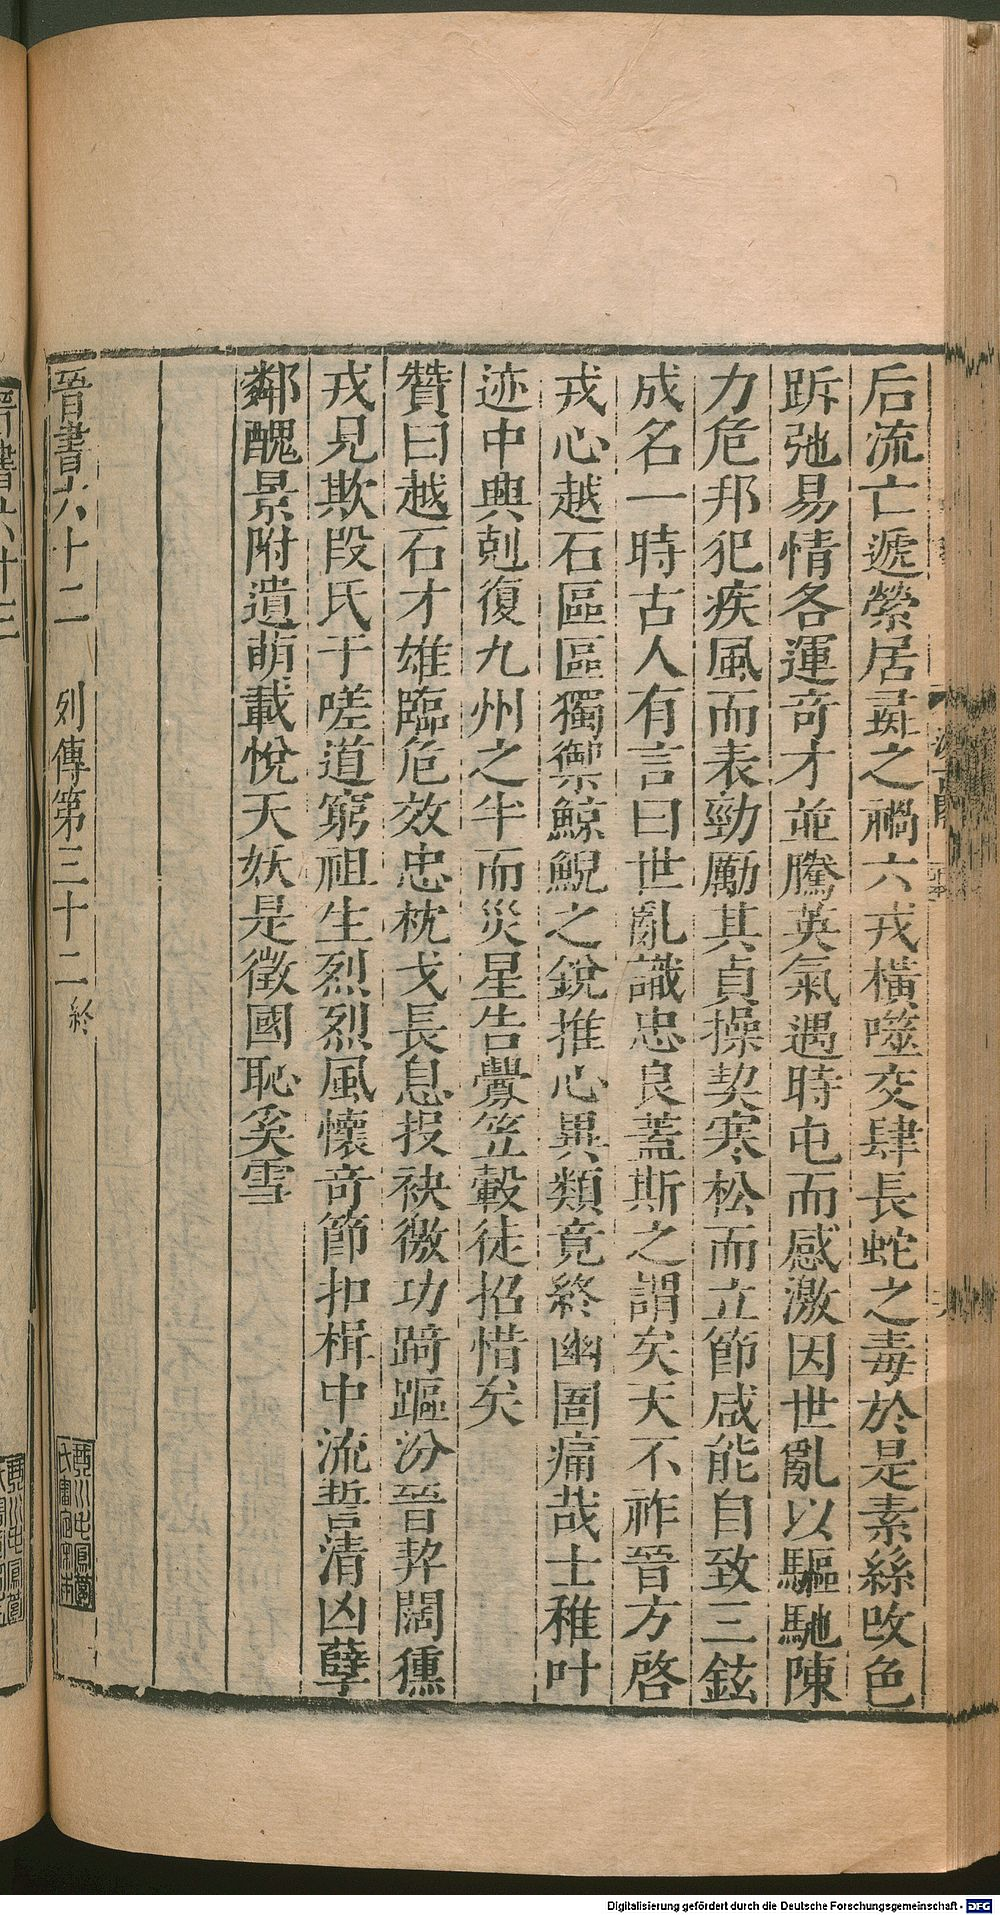 后流亡遞縈居彘之禍六戎橫噬交肆長蛇之毒於是素絲改色
跅弛易情各運奇才並騰英氣遇時屯而感激因世亂以驅馳陳
力危邦犯疾風而表勁勵其貞操契寒松而立節咸能自致三鉉
成名一時古人有言曰世亂識忠良蓋斯之謂矣天不祚晉方啓
戎心越石區區獨禦鯨鯢之銳推心異類竟終幽圄痛哉士稚叶
迹中興剋復九州之半而災星告釁笠轂徒招惜矣
贊曰越石才雄臨危效忠枕戈長息投袂徼功踦𨄅汾晉契闊獯
戎見欺段氏于嗟道窮祖生烈烈風懷奇節扣楫中流誓清凶孽
鄰醜景附遺萌載悅天妖是徵國恥奚雪
晉書六十二 列傳第三十二 終
Digitalisierung gefördert durch die Deutsche Forschungsgemeinschaft - DFG